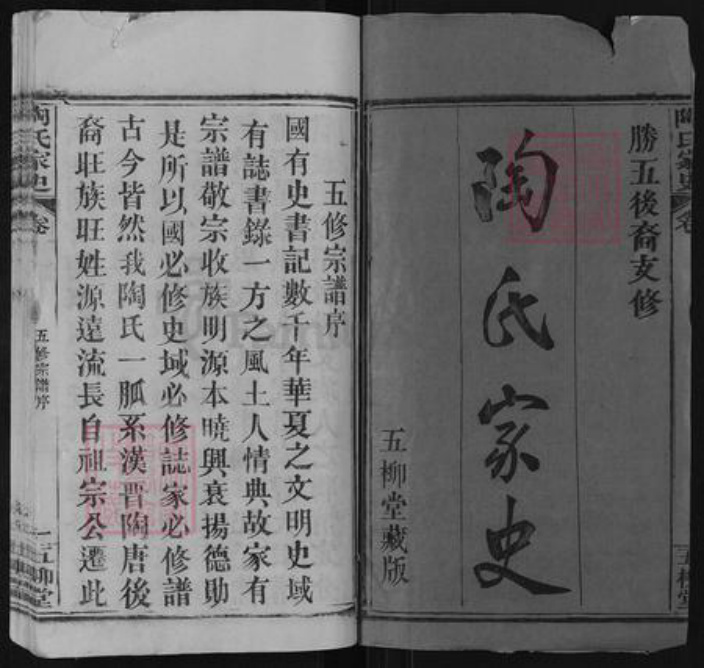 勝五後裔支修
陶氏家史
五柳堂藏版
五修宗譜序
國有史書記數千年華夏之文明史域
有誌書錄一方之風土人情典故家有
宗譜敬宗收族明源本曉興衰揚德勛
是所以國必修史域必修誌家必修譜
古今皆然我陶氏一脈系漢晋陶唐後
裔旺族旺姓源遠流長自祖宗公遷此
陶氏家史
卷
五修宗譜序
一
五柳堂